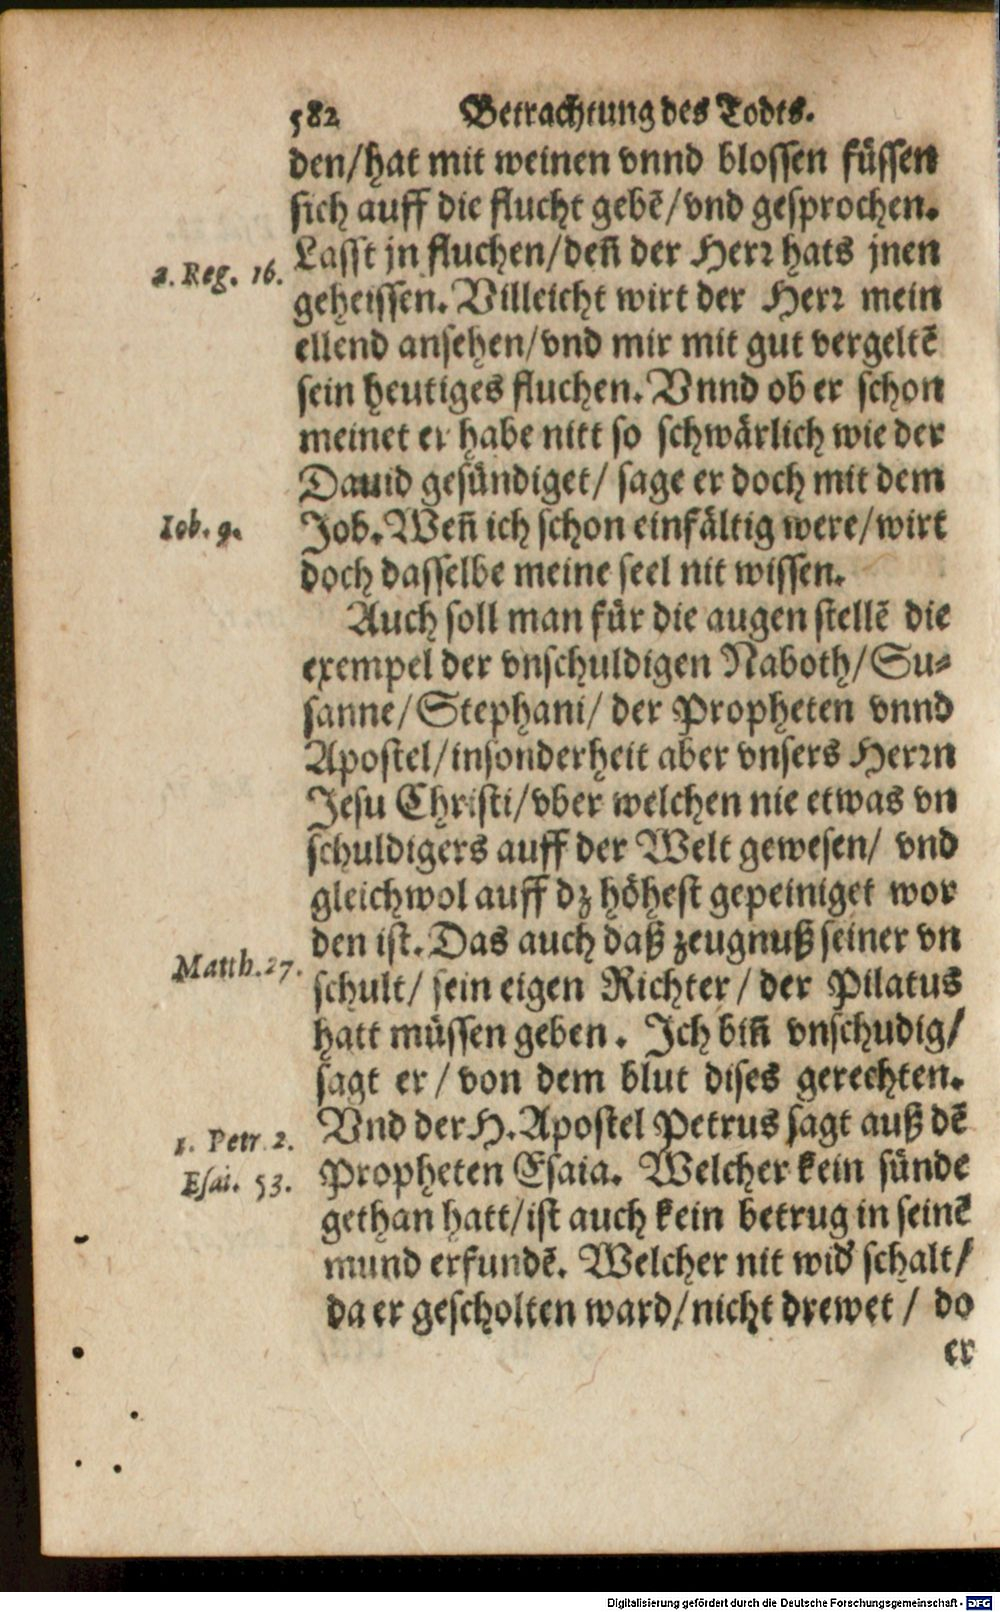 582 Betrachtung des Todts.
den/hat mit weinen vnnd blossen füssen
sich auff die flucht gebē/vnd gesprochen.
Lasst jn fluchen/deñ der Herr hats jnen
2. Reg. 16.
geheissen. Villeicht wirt der Herr mein
ellend ansehen/vnd mir mit gut vergeltē
sein heutiges fluchen. Vnnd ob er schon
meinet er habe nitt so schwärlich wie der
Dauid gesündiget/ sage er doch mit dem
Iob. 9.
Job. Weñ ich schon einfältig were/wirt
doch dasselbe meine seel nit wissen.
Auch soll man für die augen stellē die
exempel der vnschuldigen Naboth/Su⸗
sanne/Stephani/ der Propheten vnnd
Apostel/insonderheit aber vnsers Herrn
Jesu Christi/vber welchen nie etwas vn
schuldigers auff der Welt gewesen/ vnd
gleichwol auff dz höhest gepeiniget wor
den ist. Das auch daß zeugnuß seiner vn
Matth. 27.
schult/ sein eigen Richter/ der Pilatus
hatt müssen geben. Ich biñ vnschudig/
sagt er/ von dem blut dises gerechten.
Vnd der H. Apostel Petrus sagt auß dē
1. Petr. 2.
Propheten Esaia. Welcher kein sünde
Esai. 53.
gethan hatt/ist auch kein betrug in seinē
mund erfundē. Welcher nit wid' schalt/
da er gescholten ward/nicht drewet/ do
er
Digitalisierung gefördert durch die Deutsche Forschungsgemeinschaft - DFG